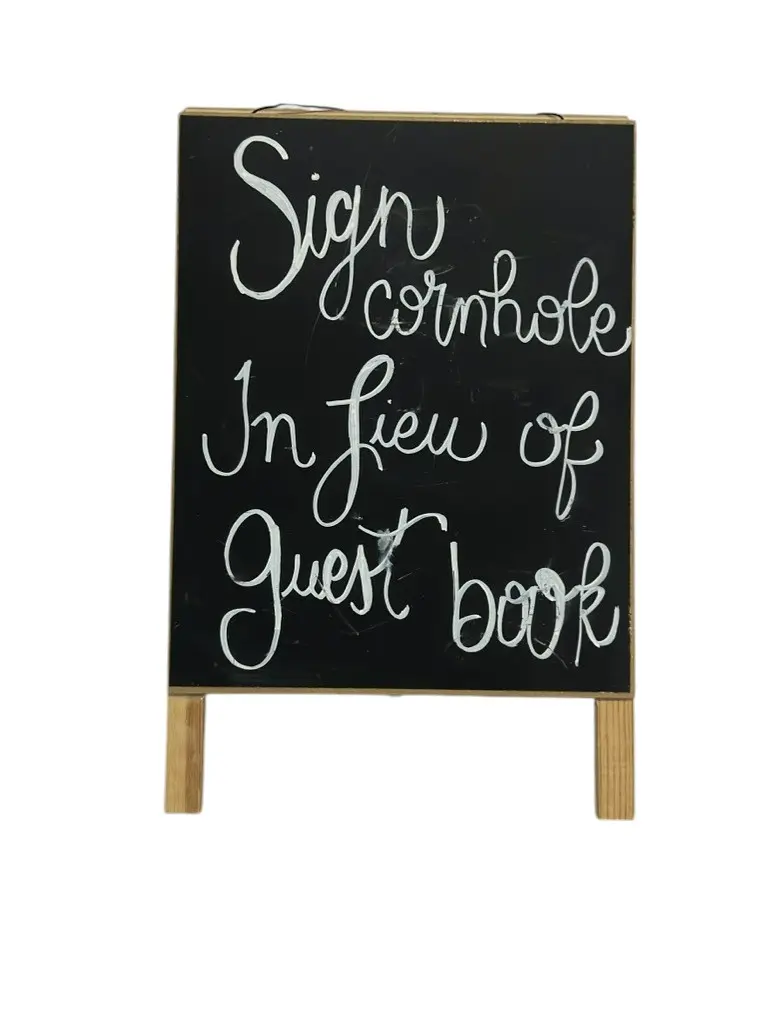 Sign
cornhole
In Lieu of
guest book